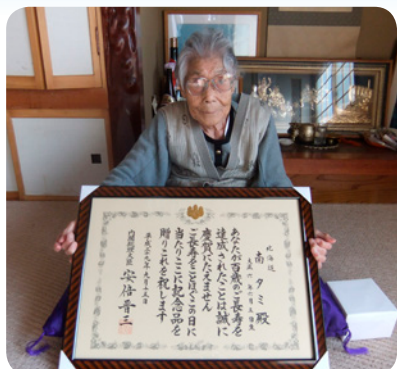 北海道
南 タミ 殿
大正六年六月五日生
あなたが百歳のご長寿を
達成されたことは誠に
慶賀にたえません
ご長寿をことほぐこの日に
当たりここに記念品を
贈りこれを祝します
平成二十九年九月十五日
内閣総理大臣 安倍晋三